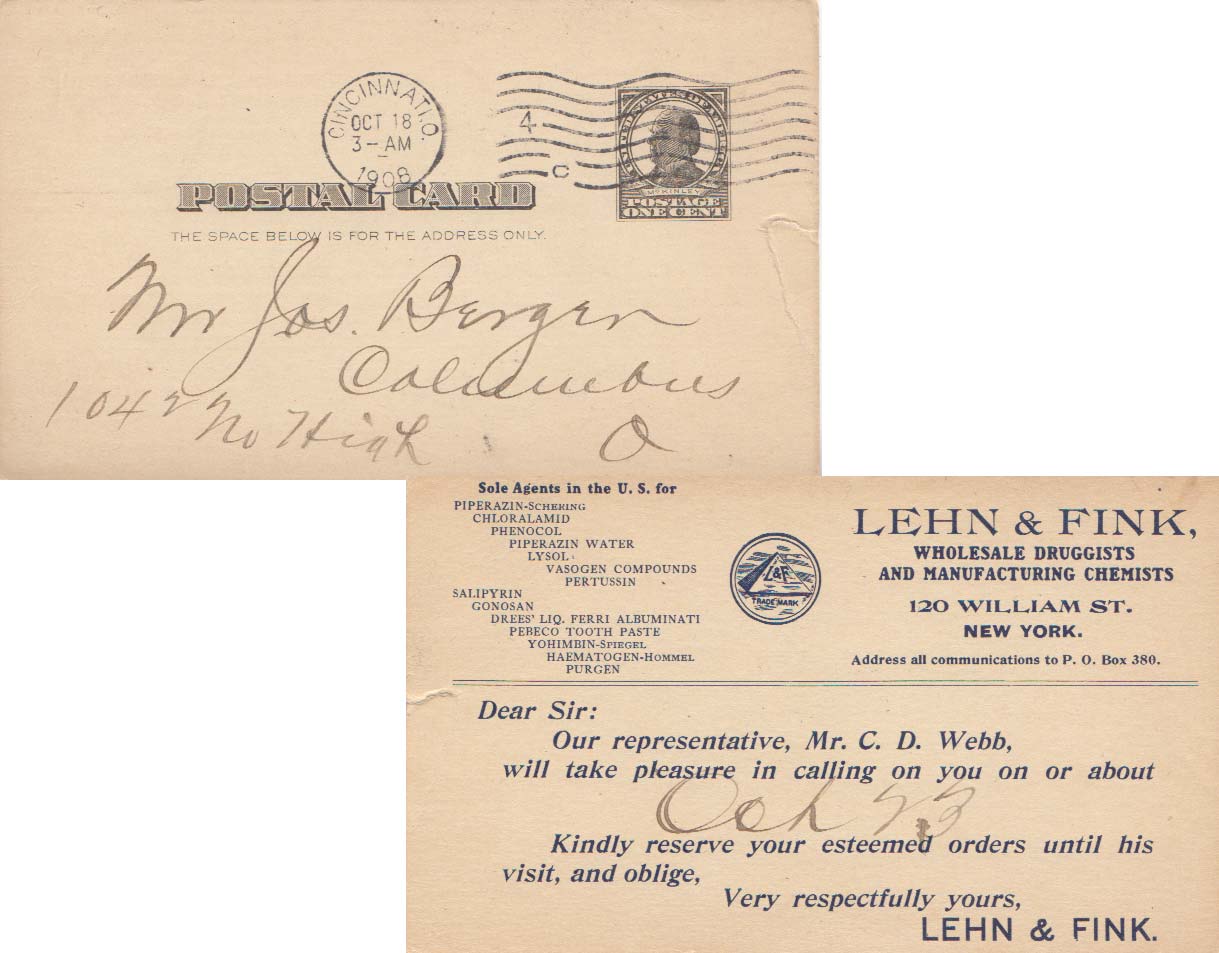 CINCINNATI, O.
OCT 18
3-AM
1908
4
C
UNITED STATES OF AMERICA
McKINLEY
POSTAGE
ONE CENT
POSTAL CARD
THE SPACE BELOW IS FOR THE ADDRESS ONLY.
Mr Jos. Berger
Columbus
1042 No High O
Sole Agents in the U. S. for
PIPERAZIN-SCHERING
CHLORALAMID
PHENOCOL
PIPERAZIN WATER
LYSOL
VASOGEN COMPOUNDS
PERTUSSIN
SALIPYRIN
GONOSAN
DREES' LIQ. FERRI ALBUMINATI
PEBECO TOOTH PASTE
YOHIMBIN-SPIEGEL
HAEMATOGEN-HOMMEL
PURGEN
L&F
TRADE MARK
LEHN & FINK,
WHOLESALE DRUGGISTS
AND MANUFACTURING CHEMISTS
120 WILLIAM ST.
NEW YORK.
Address all communications to P. O. Box 380.
Dear Sir:
Our representative, Mr. C. D. Webb,
will take pleasure in calling on you on or about
Oct 23
Kindly reserve your esteemed orders until his
visit, and oblige,
Very respectfully yours,
LEHN & FINK.